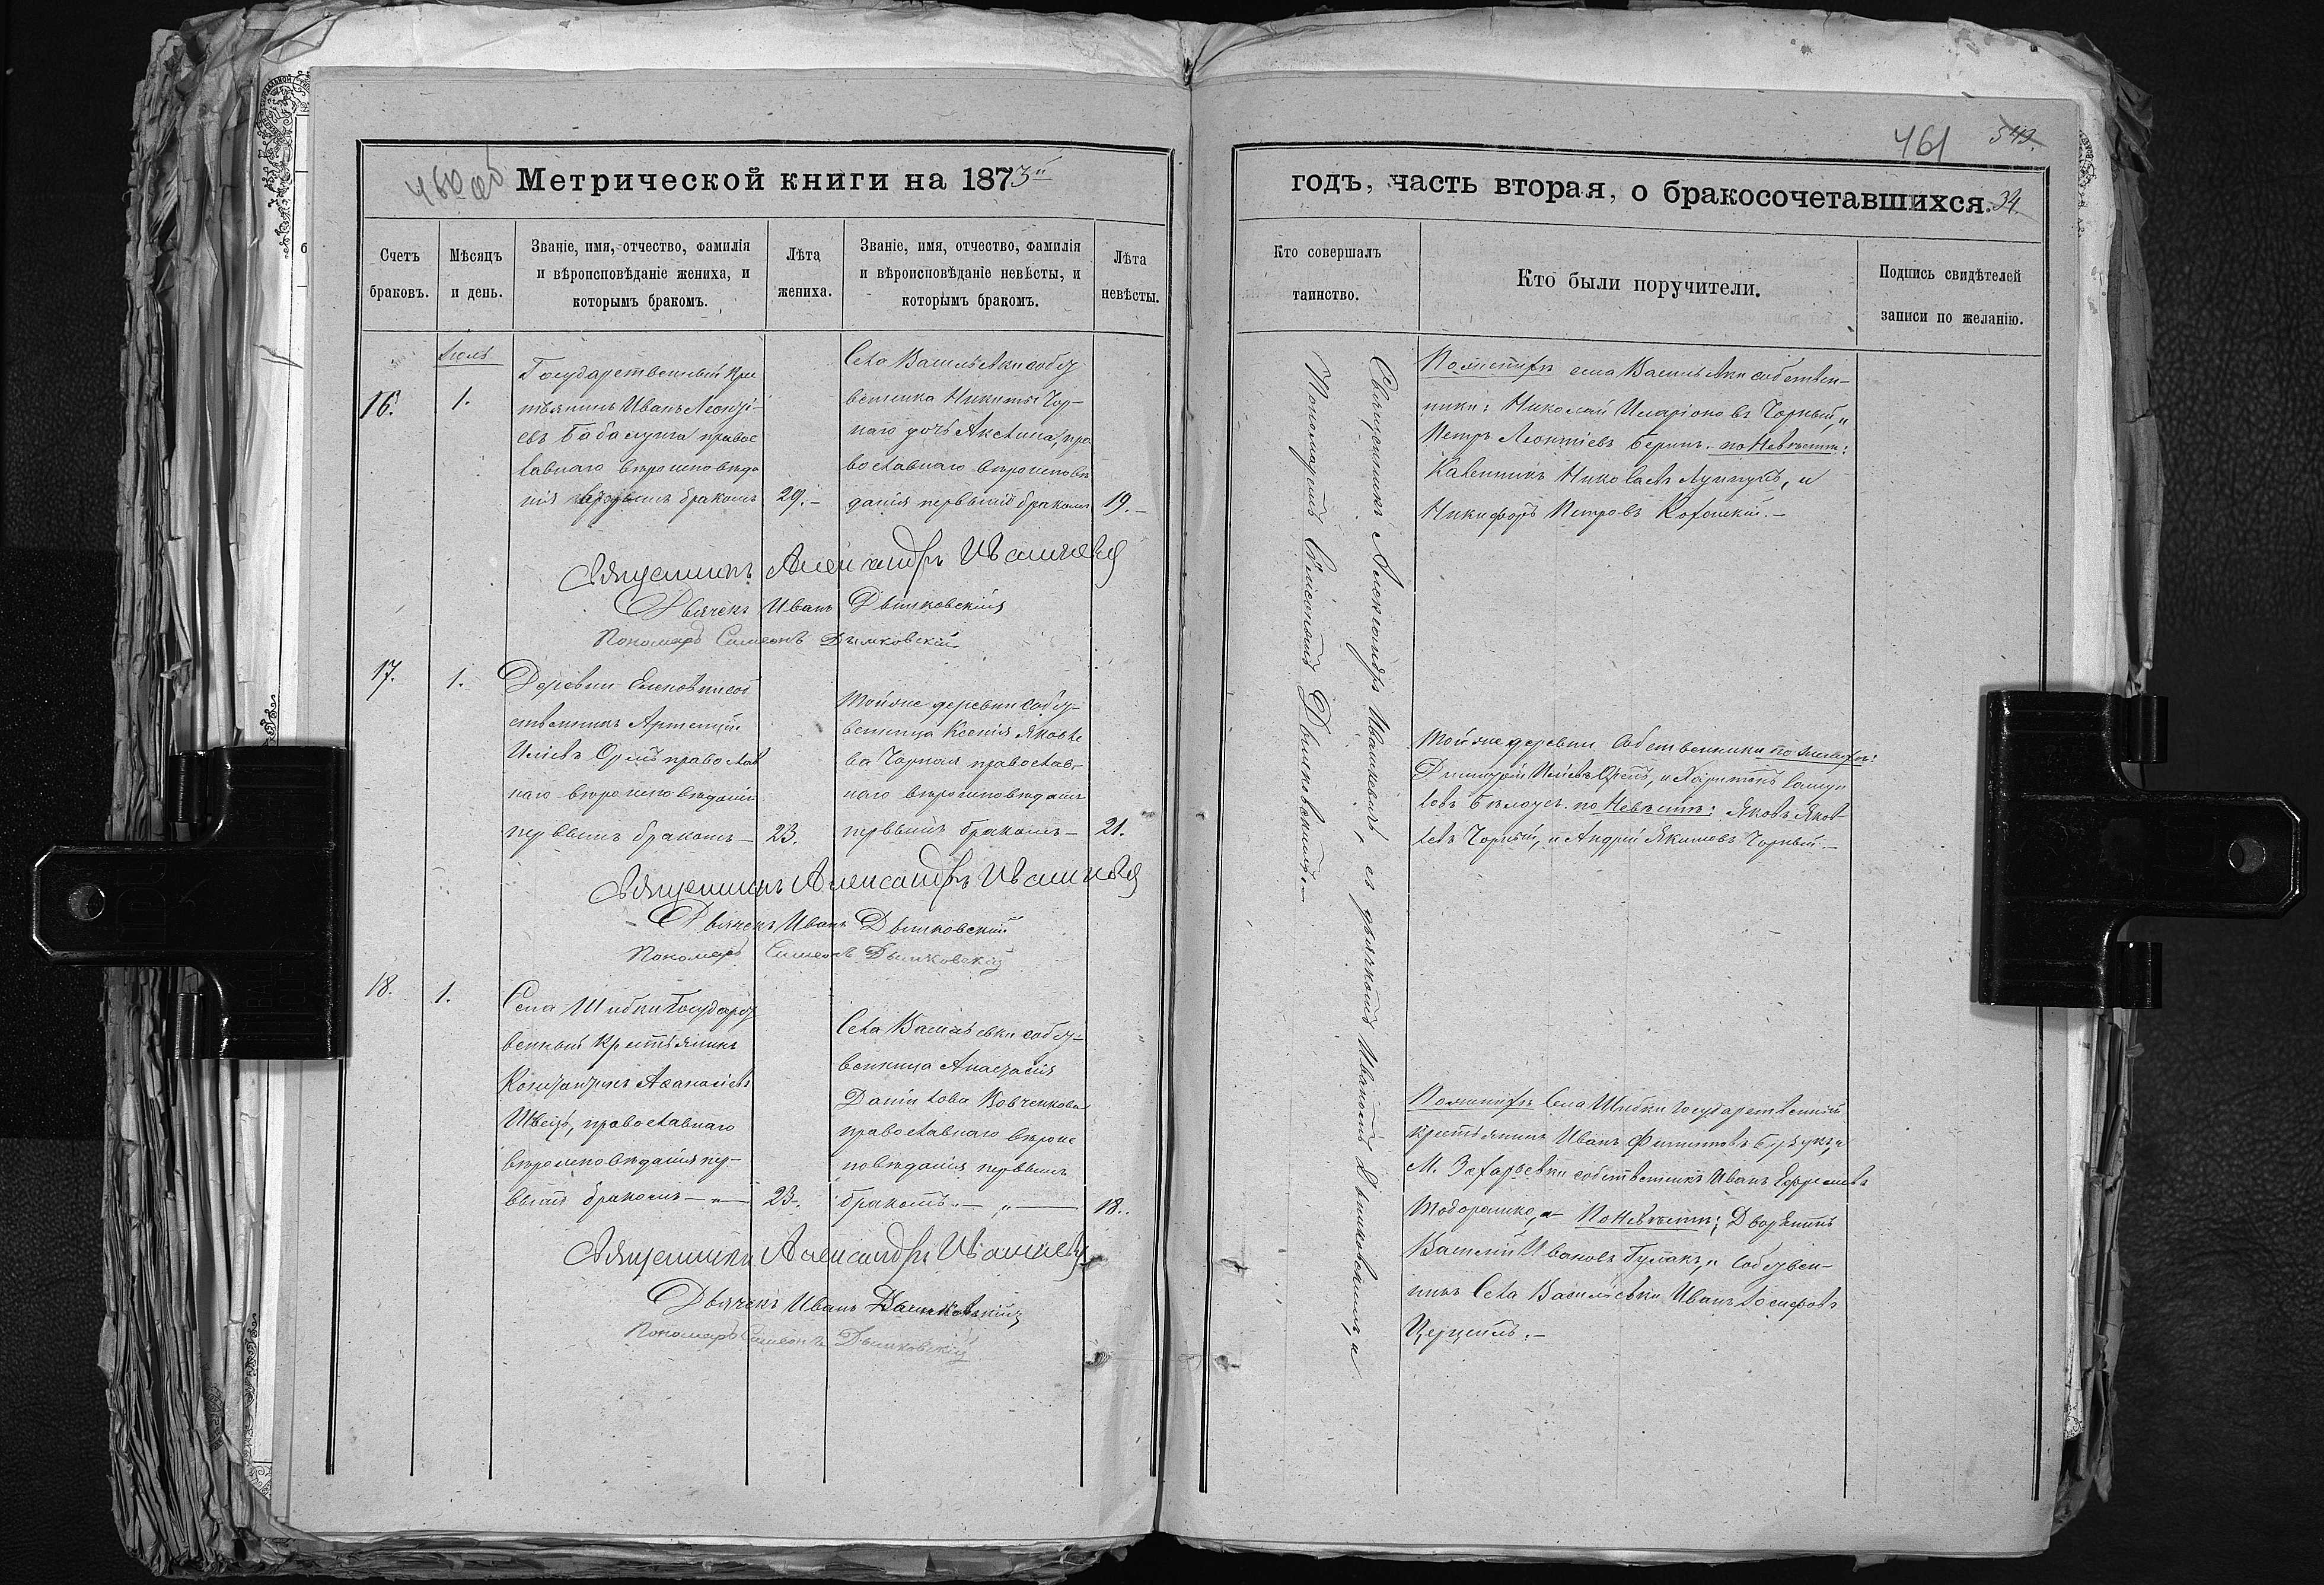 460 об
Метрической книги на 1873й
Счетъ браковъ.
Мѣсяцъ и день.
Званіе, имя, отчество, фамилія
и вѣроисповѣданіе жениха, и
которымъ бракомъ.
Лѣта жениха.
Званіе, имя, отчество, фамилія
и вѣроисповѣданіе невѣсты, и
которымъ бракомъ.
Лѣта невѣсты.
Іюль
16.
1.
Государственный Кре
стьянинъ Иванъ Леонті-
евъ православ
лавнаго вѣроисповѣда
нія бракомъ
29.-
Села Васильевки собст
венника Никиты Чор-
наго дочь Аксенія, пра
вославнаго вѣроисповѣ
данія первымъ бракомъ
19.-
Священникъ Александръ Ивашкевич
Дьячекъ Иванъ Дымковскій
Пономарь Симеонъ Дымковскій
17.
1.
Деревни Еленовки соб
ственникъ Артемій
Иліевъ Орелъ православ
наго вѣроисповѣданія
первымъ бракомъ-
23.
Той же деревни собст-
венница Ксенія Яковле
ва Чорная православ-
наго вѣроисповѣданія
первымъ бракомъ-
21.
Священникъ Александръ Ивашкевич
Дьячекъ Иванъ Дымковскій
Пономарь Симеонъ Дымковскій
18.
1.
Села Шибки Государст
венный Крестьянинъ
Константинъ Аѳанасіевъ
Швецъ, православнаго
вѣроисповѣданія пер-
вымъ бракомъ-"-
23-.
Села Васильевки собст-
венница Анастасія
Даніилова Вовченкова
православнаго вѣроис
повѣданія первымъ
бракомъ.- "-
18..
Священникъ Александръ Ивашкевич
Дьячекъ Иванъ Дымковскій
Пономарь Симеонъ Дымковскій
461
543
годъ, часть вторая, о бракосочетавшихся.
34.
Кто совершалъ таинство.
Кто были поручители.
Подпись свидѣтелей
записи по желанію.
Священникъ Александръ Ивашкевичъ, съ дьячкомъ Иваномъ Дымковскимъ, и
Пономаремъ Симеономъ Дымковскимъ.-
По женихѣ села Васильевки собствен-
ники: Николай Иларіоновъ Чорный, и
Петръ Леонтіевъ по Невѣстѣ:
Николаевъ и
Никифоръ Петровъ
Той же деревни Собственники по женихѣ:
Димитрій Иліевъ Орелъ, и Харитонъ Самуи
ловъ Бѣлоусъ, по Невѣстѣ: Яковъ Яков
левъ Чорный, и Андрей Якимовъ Чорный-
По женихѣ Села Шибки государственный
крестьянинъ Иванъ Филиповъ и
М. Захарьевки собственникъ Иванъ Ефремовъ
Тодорашко, а По Невѣстѣ: Дворянинъ
Василій Ивановъ и Собствен-
никъ Села Васильевки Иванъ Іосифовъ